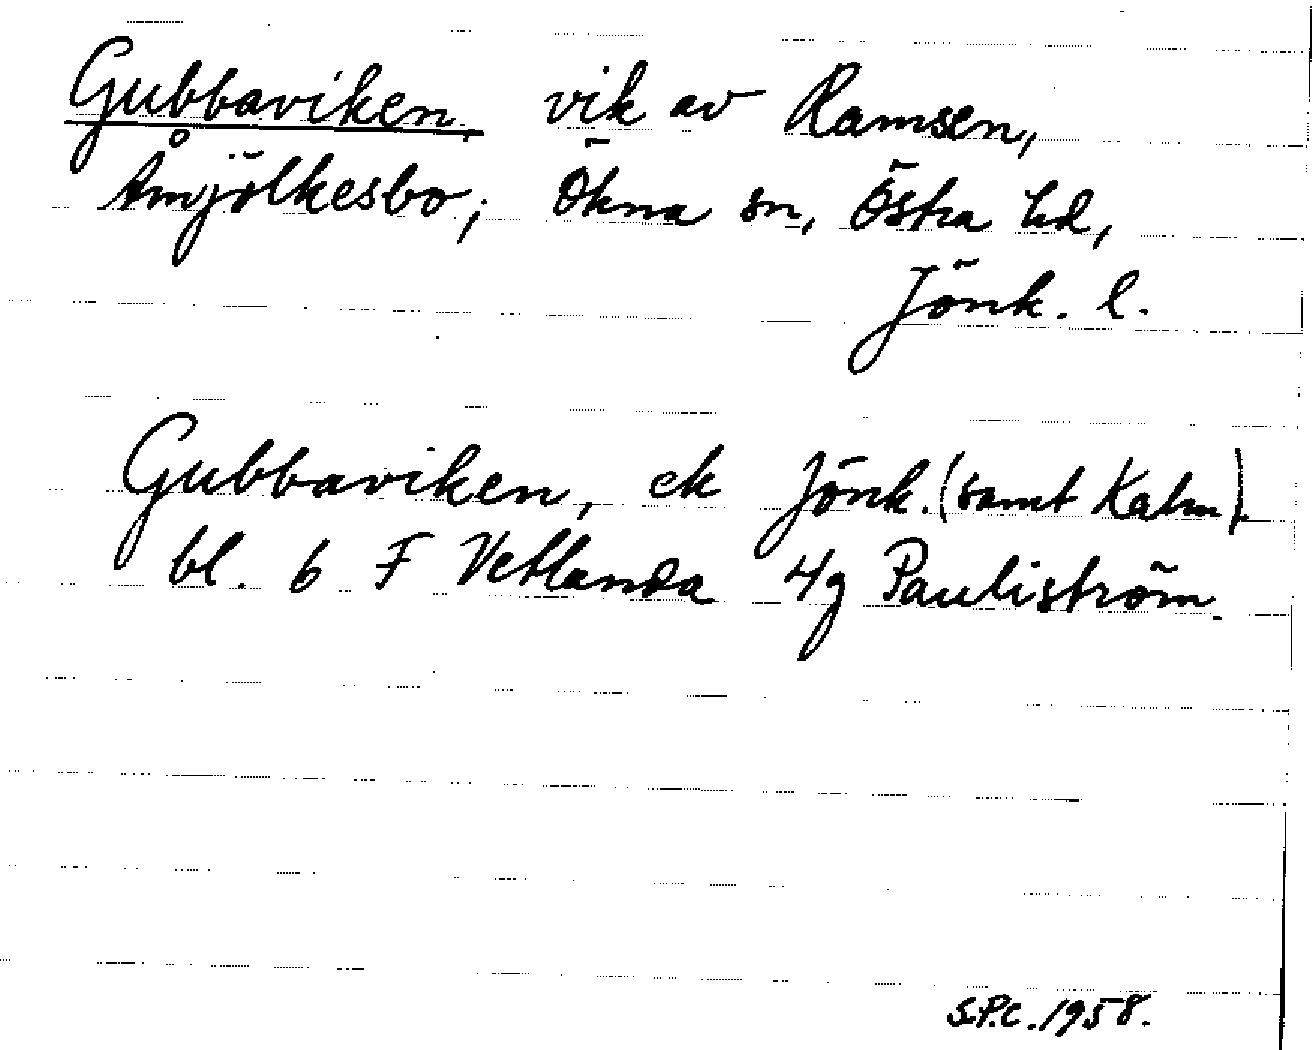 Gubbaviken, vik av Ramsen,
Åmjölkesbo; Ökna sn, Östra hd,
Jönk. l.
Gubbaviken, ek Jönk. (samt Kalm).
bl. 6 F Vetlanda 4g Pauliström.
S.P.C. 1958.